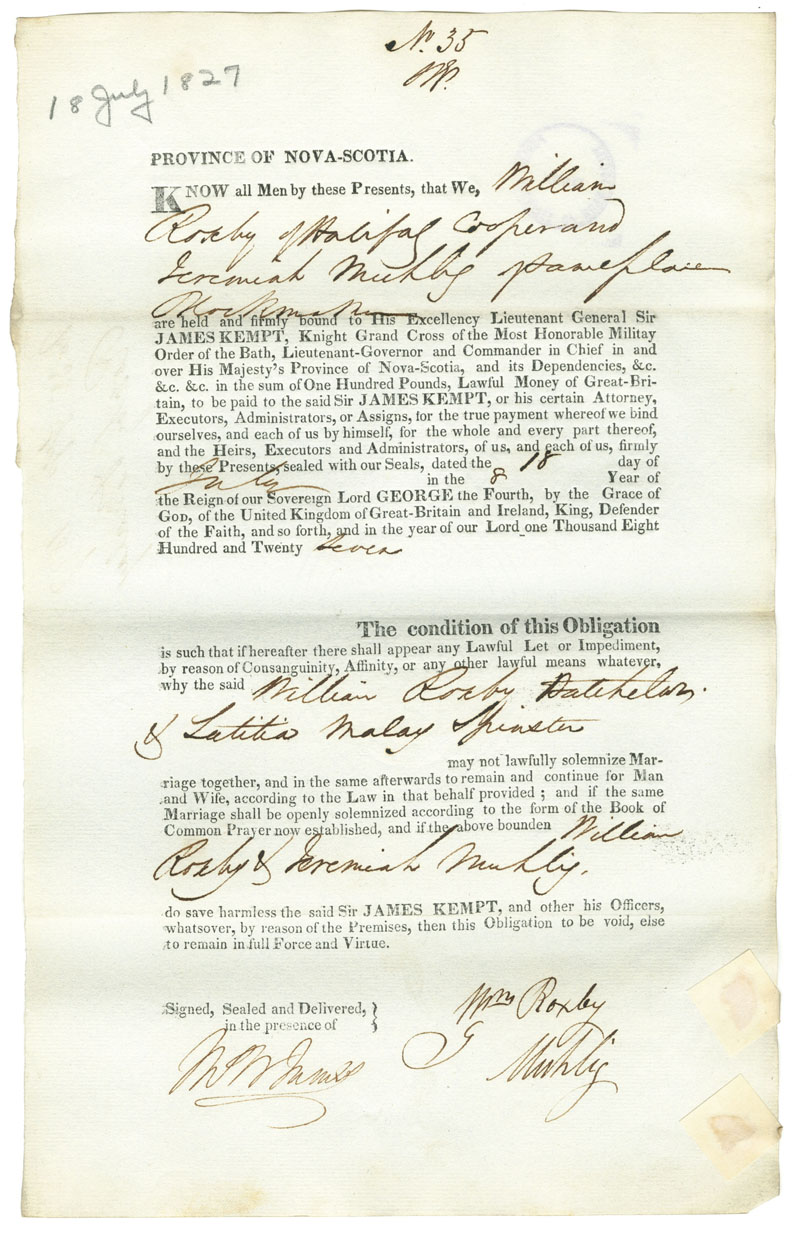 No. 35
18 July 1827
PROVINCE OF NOVA-SCOTIA.
KNOW all Men by these Presents, that We, William
Roxby of Halifax Cooper and
Jeremiah Muhlig of same place
Blockmaker
are held and firmly bound to His Excellency Lieutenant General Sir
JAMES KEMPT, Knight Grand Cross of the Most Honorable Militay
Order of the Bath, Lieutenant-Governor and Commander in Chief in and
over His Majesty's Province of Nova-Scotia, and its Dependencies, &c.
&c. &c. in the sum of One Hundred Pounds, Lawful Money of Great-Bri-
tain, to be paid to the said Sir JAMES KEMPT, or his certain Attorney,
Executors, Administrators, or Assigns, for the true payment whereof we bind
ourselves, and each of us by himself, for the whole and every part thereof,
and the Heirs, Executors and Administrators, of us, and each of us, firmly
by these Presents, sealed with our Seals, dated the 18 day of
July in the 8 Year of
the Reign of our Sovereign Lord GEORGE the Fourth, by the Grace of
GOD, of the United Kingdom of Great-Britain and Ireland, King, Defender
of the Faith, and so forth, and in the year of our Lord one Thousand Eight
Hundred and Twenty Seven
The condition of this Obligation
is such that if hereafter there shall appear any Lawful Let or Impediment,
by reason of Cousanguinity, Affinity, or any other lawful means whatever,
why the said William Roxby Batchelor
& Latitia Malay Spinster
may not lawfully solemnize Mar-
riage together, and in the same afterwards to remain and continue for Man
and Wife, according to the Law in that behalf provided ; and if the same
Marriage shall be openly solemnized according to the form of the Book of
Common Prayer now established, and if the above bounden William
Roxby & Jeremiah Muhlig.
do save harmless the said Sir JAMES KEMPT, and other his Officers,
whatsover, by reason of the Premises, then this Obligation to be void, else
to remain in full Force and Virtue.
Signed, Sealed and Delivered, }
in the presence of
Wm Roxby
Muhlig